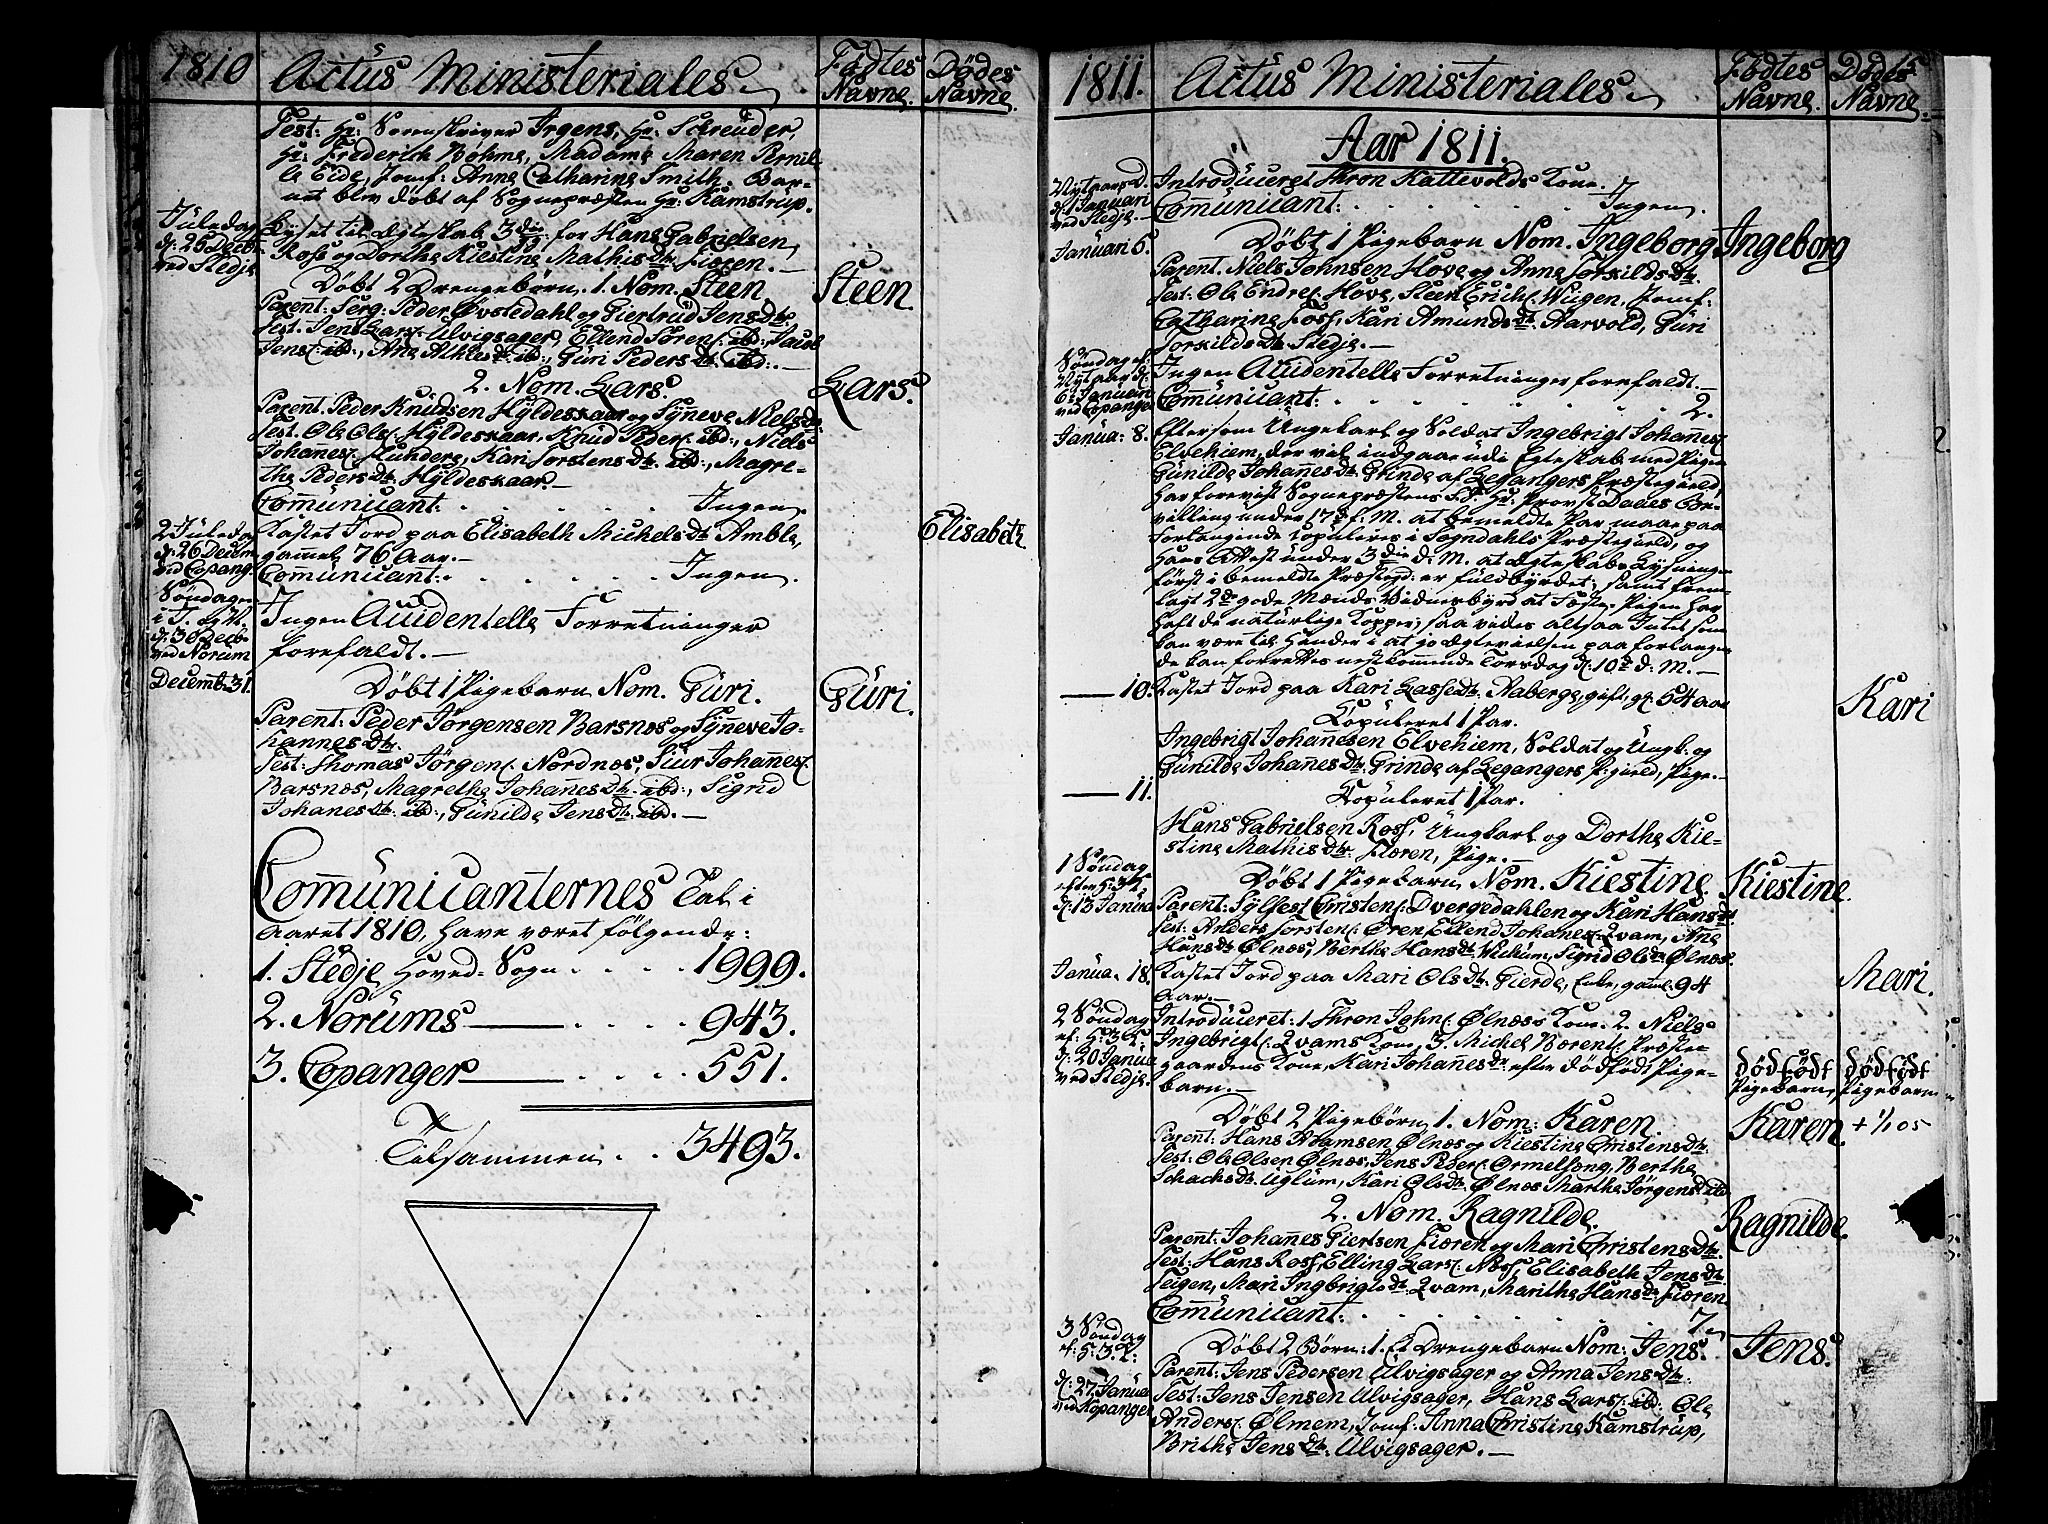 1810
Actus Ministeriales
Fødtes
Navne.
Dødes
Navne.
Test: Hr: Sorenskriver Irgens, Hr: Schreüder,
Hr: Frederich Bøhme, Madame Maren Pernil-
le Eide, Jomf: Anne Catharine Smith. Bar-
net blev døbt af Sognepræsten Hr: Kamstrup.
Juledag
d: 25 Decbr
ved Stedje
Lyset til Ægteskab 3die g for Hans Gabrielsen
Ross og Dorthe Kiestine Mathisdtr Fiæren.
Døbt 2 Drengebørn. 1. Nom. Steen
Steen
Parent: Serg: Peder Øvstedahl og Giertrüd Jensdtr
Test. Jens Lars: Ulvigsager, Ellend Søren: ibd:, Jacob
Jens: ibd:, Ane Athlesdt: ibd:, Güri Pedersdt: ibd:.
2. Nom. Lars.
Lars.
Parent: Peder Knüdsen Hyldeskaar og Syneve Nielsdtr
Test. Ole Ols: Hyldeskaar, Knud Peder: ibd:, Niels
Johanes: Flünders, Kari Torstensdt: ibd:, Magre-
the Pedersdt: Hyldeskaar.
Com̄ünicant: Ingen.
2 Juledag
d: 26 Decem
ved Copang:
Kastet Jord paa Elisabeth Michelsdt Amble,
gammel 76 Aar.
Elisabeth
Com̄unicant: . . . . . Ingen.
Søndagen
d: 30 Decb
ved Norum
Ingen Accidentelle Forretninger
forefaldt.
Decemb: 31.
Døbt 1 Pigebarn Nom. Güri.
Güri.
Parent: Peder Jørgensen Barsnes og Syneve Jo-
hannesdtr
Test: Thomas Jørgen: Nordnæs, Siur Johannes:
Barsnæs, Magrethe Johanesdt: ibd:, Sigrid
Johanesdt: ibd:, Günilde Jensdt: ibd.
Com̄ünicanternes Tal i
Aaret 1810, have været følgende:
1. Stedje Hoved-Sogn . . . . 1999.
2. Norüms . . . . 943.
3. Copanger . . . . 551.
Tilsammen . . 3493.
1811.
Actus Ministeriales
Fødtes
Navne.
Dødes
Navne.
Aar 1811.
Nytaarsd.
d: 1 Januari
ved Stedje
Introdüceret Thron Kattevolds Kone.
Com̄unicant: . . . . . Ingen.
Januari 5.
Døbt 1 Pigebarn Nom. Ingeborg
Ingeborg
Parent. Niels Johnsen Hove og Anne Torkildsdtr
Test: Ole Endre: Hove, Steen Erich: Wiigen, Jomf:
Catharine Foss, Kari Amündsdt: Aarvold, Güri
Torkildsdt: Stedje.
Søndag ef:
Nytaar d:
6 Januari
ved Copanger
Ingen Accidentelle Forretninger forefaldt.
Com̄ünicant: . . . . . 2.
Janua: 8.
Eftersom Üngekarl og Soldat Ingebrigt Johanes:
Elvehiem, der vil indgaae udi Egteskab med Pigen
Günilde Johanesdt: Grinde af Legangers Præstegield,
har forevist Sognepræstens S.T. Hr: Provst Daaes Be-
villing under 17de f: M. at bemeldte Par maae paa
forlangende copuleres i Sogndahls Præstegield, og
Hans Attest ünder 3die d: M. at Ægteskabs Lysningen
først i bemeldte Præstegd: er füldbyrdet; samt frem-
lagt 2de gode Mænds Vidnesbyrd at Fæste-Pigen har
haft de natürlige Kopper; saa vides altsaa Intet som
kan være til Hinder i at jo Ægtevielsen paa forlangen-
de kan forrettes nestkommende Torsdag d: 10de d: M.
— 10.
Kastet Jord paa Kari Lassesdt: Aaberge, gift, gl: 54 aar
Kari
Copuleret 1 Par.
Ingebrigt Johannesen Elvehiem, Soldat og Ungk: og
Günilde Johanesdt: Grinde af Legangers P:gield, Pige.
— 11.
Copuleret 1 Par.
Hans Gabrielsen Ross, Ungkarl og Dorthe Kie-
stine Mathisdtr Fiæren, Pige.
1 Søndag
efter H: 3 K:
d: 13 Janua
Døbt 1 Pigebarn Nom. Kiestine
Kiestine.
Parent: Sylfest Christen: Dvergedahlen og Kari Hansdt
Test: Anders Torsten: Øren, Ellend Johanes: Qvam, Ane
Hansdt: Ølnæs, Berthe Hansdt: Wichüm, Sigrid Olsdt Ølnæs.
Janua. 18.
Kastet Jord paa Mari Olsdt: Gierde, Enke, gaml. 94
Aar.
Mari.
2 Søndag
ef: H: 3 K:
d: 20 Janua
ved Stedje.
Introdüceret: 1 Thron John: Ølnæss Kone. 2. Niels
Ingebrigt: Qvams Kone, 3. Michel Børen: Præste-
gaardens Kone, Kari Johanesdr: efter dødfødt Pige-
barn.
dødfødt
Pigebarn.
dødfødt
Pigebarn
Døbt 2 Pigebørn 1. Nom: Karen.
Karen.
+ 1/1 05
Parent: Hans Adamsen Ølnæs og Kiestine Christensdtr
Test: Ole Olsen Ølnæs, Jens Peder: Ormelsong, Berthe
Schachsdt: Uglüm, Kari Olsdt: Ølnæs Marthe Jørgensdt: ibd
2. Nom. Ragnilde.
Ragnilde.
Parent: Johannes Giertsen Fiæren og Mari Christensdtr.
Test: Hans Ross, Elling Lars: Nøss, Elisabeth Jensdt:
Teigen, Mari Ingbrigtsdt: Qvam, Marithe Hansdt: Fiæren.
Com̄ünicant: . . . . . 7.
3 Søndag
ef: H: 3. K:
d: 27 Janua
ved Kopanger
Døbt 2 Børn: 1. Et Drengebarn Nom: Jens.
Jens.
Parent: Jens Pedersen Ulvigsager og Anna Jensdtr
Test: Jens Jensen Ulvigsager, Hans Lars: ibd: Ole
Anders: Ølmem, Jomf: Anna Christine Kamstrup,
Brithe Jensdt: Ulvigsager.